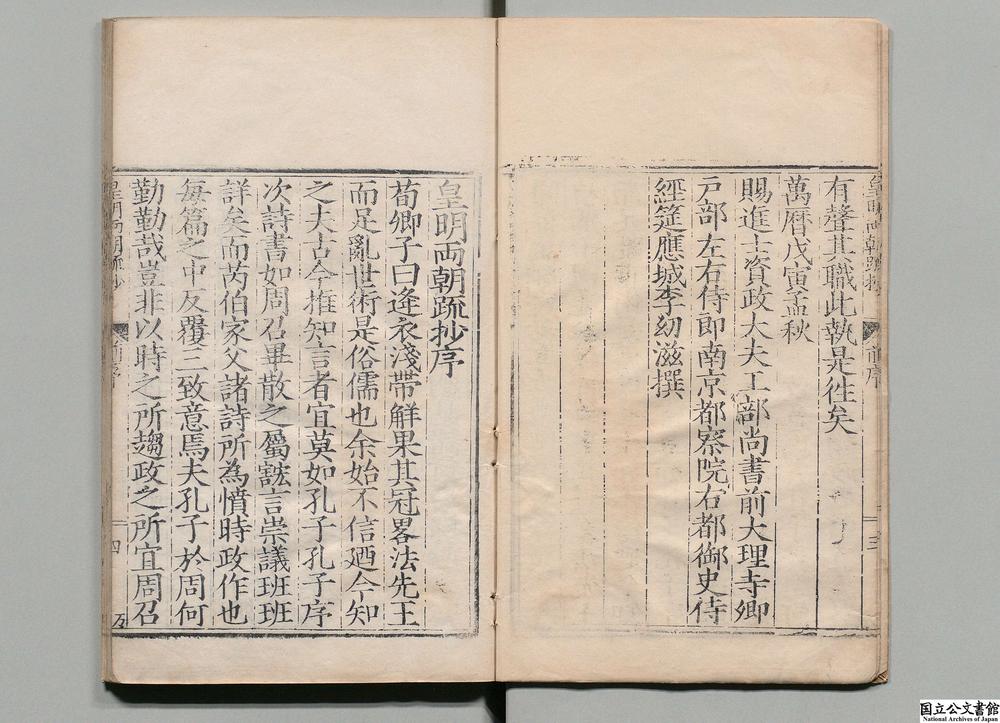 有聲其職此執是徃矣
萬曆戊寅孟秋
賜進士資政大夫工部尚書前大理寺卿
戸部左右侍郎南京都察院右都御史侍
經筵應城李幼滋撰
皇明兩朝疏抄
前序
三
皇明兩朝疏抄序
荀卿子曰逢衣淺帶解果其冠畧法先王
而足亂世術是俗儒也余始不信廼今知
之夫古今推知言者宜莫如孔子孔子序
次詩書如周召畢散之屬讜言崇議班班
詳矣而芮伯家父諸詩所為憤時政作也
每篇之中反覆三致意焉夫孔子於周何
勤勤哉豈非以時之所趨政之所宜周召
皇明兩朝疏抄
前序
四
国立公文書館
National Archives of Japan